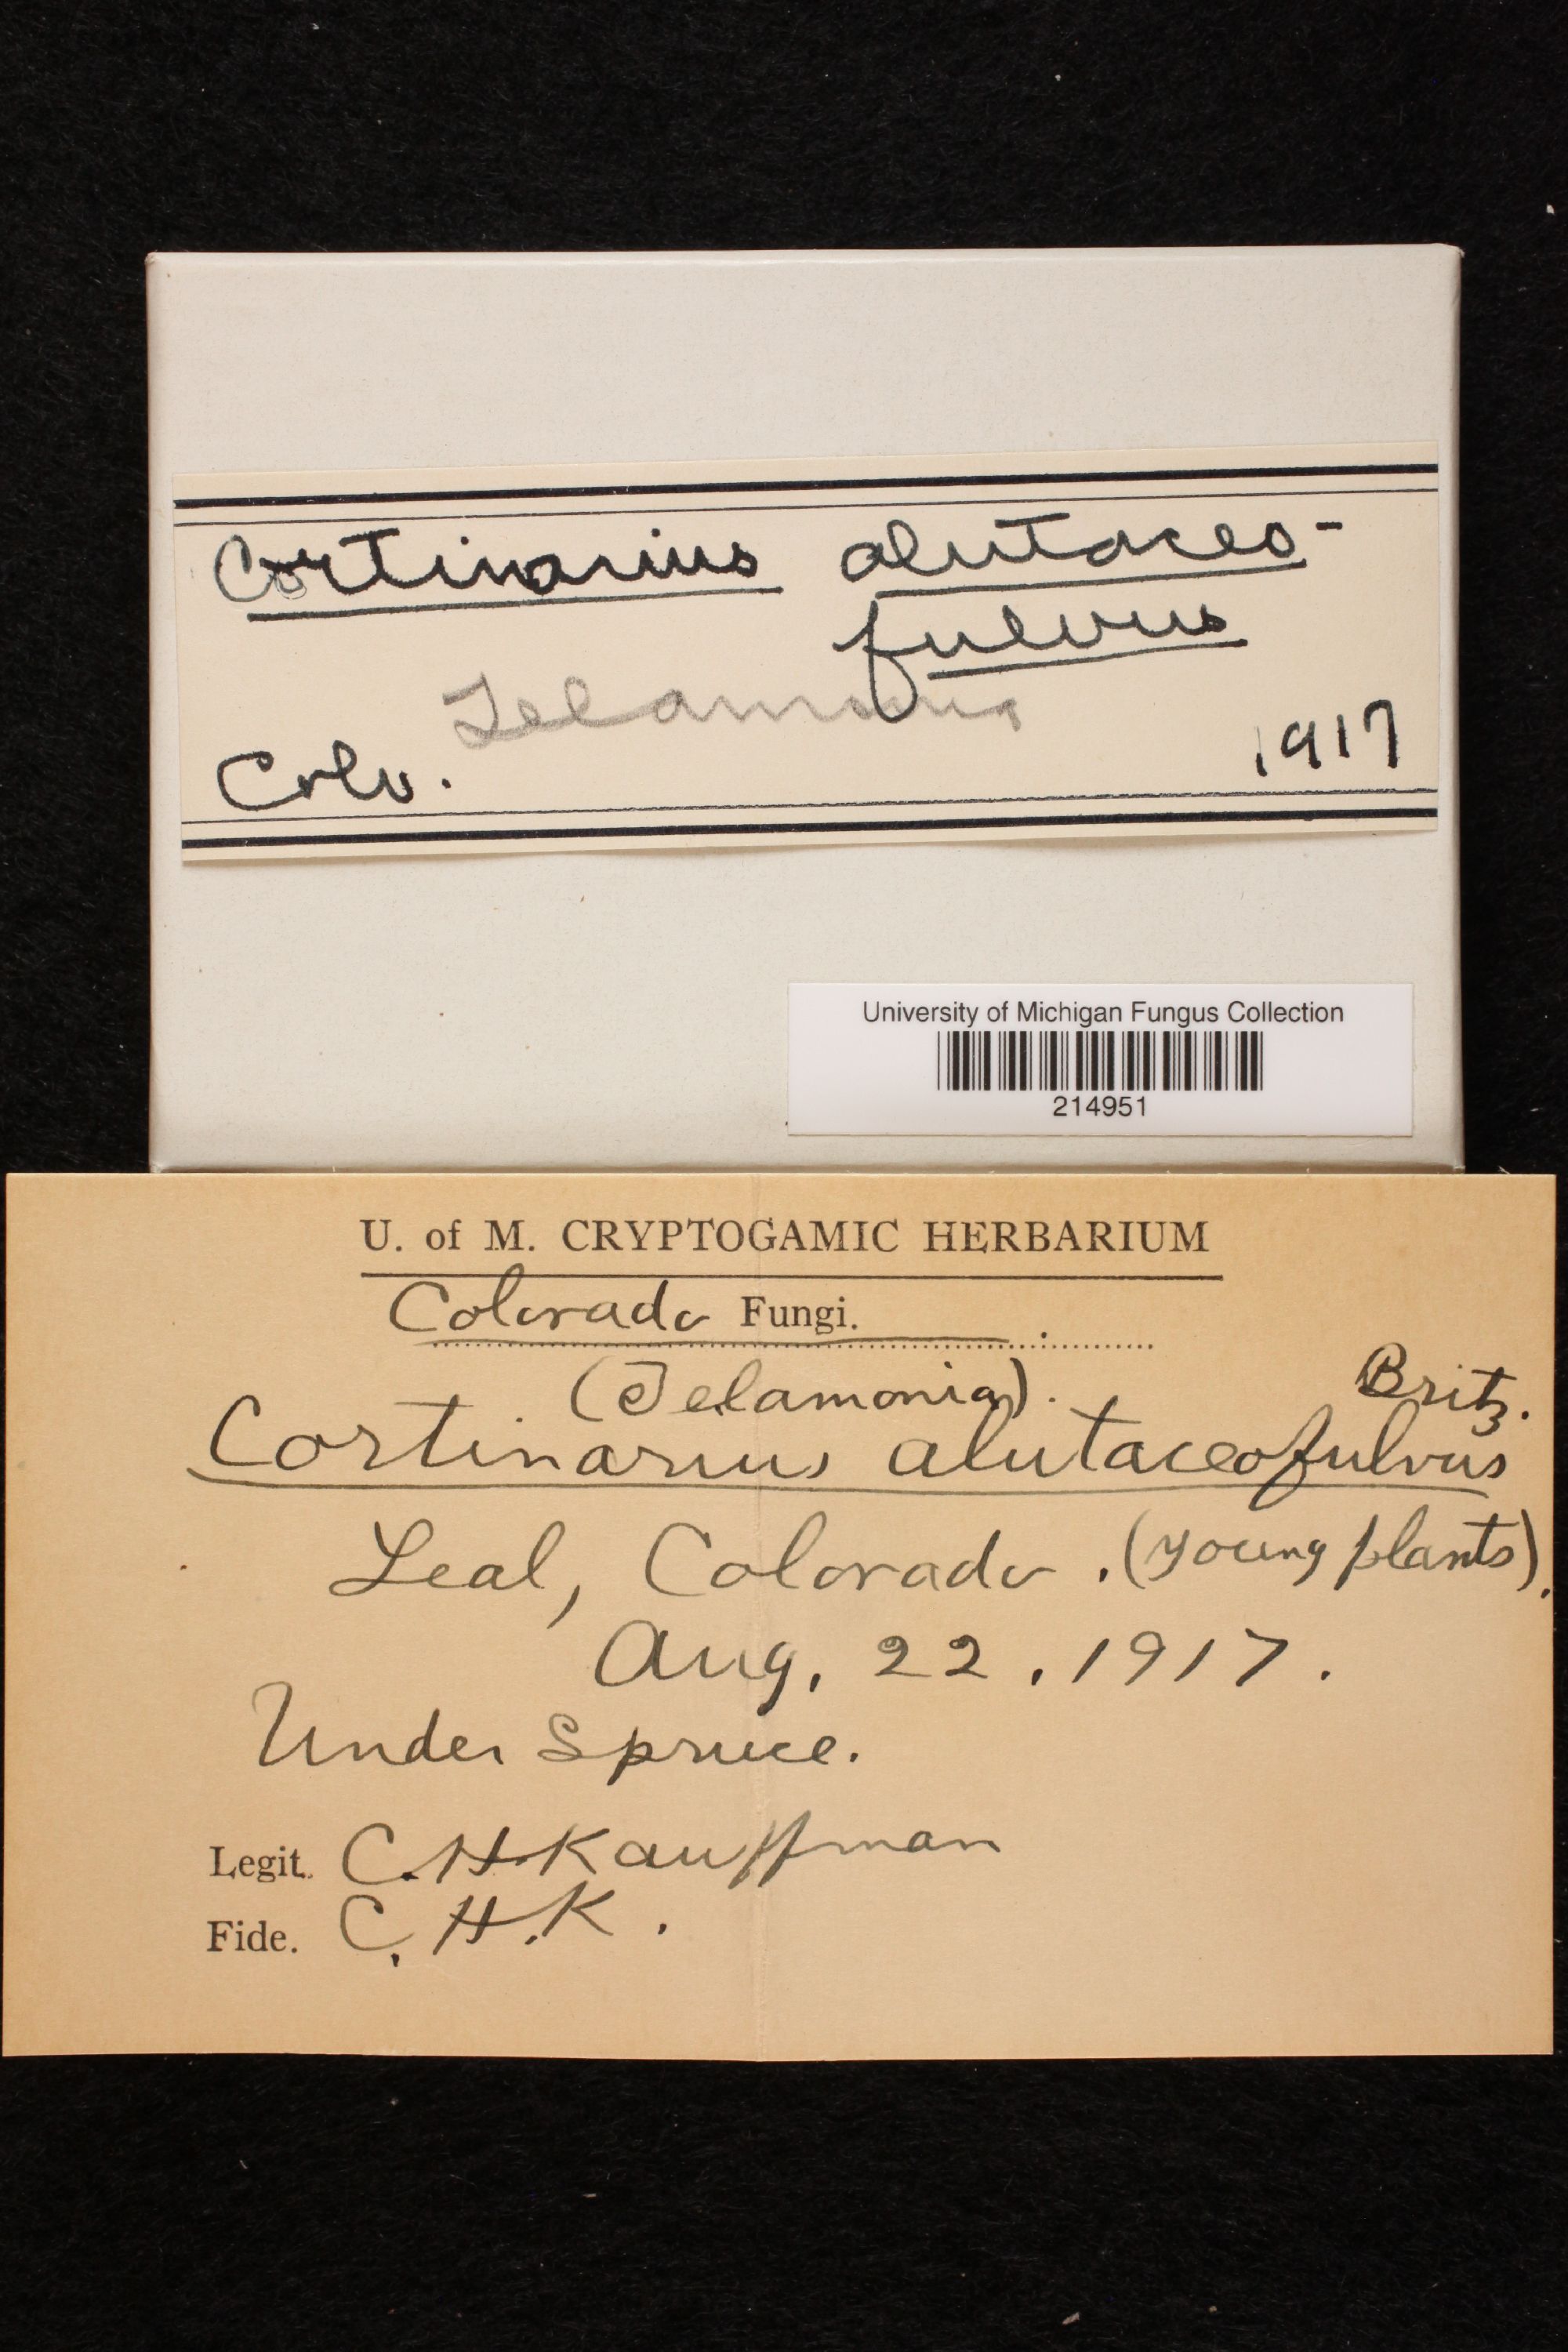 Cortinarius alutaceo-
fulvus
Telamonia
Colo. 1917
University of Michigan Fungus Collection
214951
U. of M. CRYPTOGAMIC HERBARIUM
Colorado Fungi.
(Telamonia). Britz.
Cortinarius alutaceofulvus
Leal, Colorado. (young plants).
Aug. 22, 1917.
Under Spruce.
Legit. C.H.Kauffman
Fide. C.H.K.